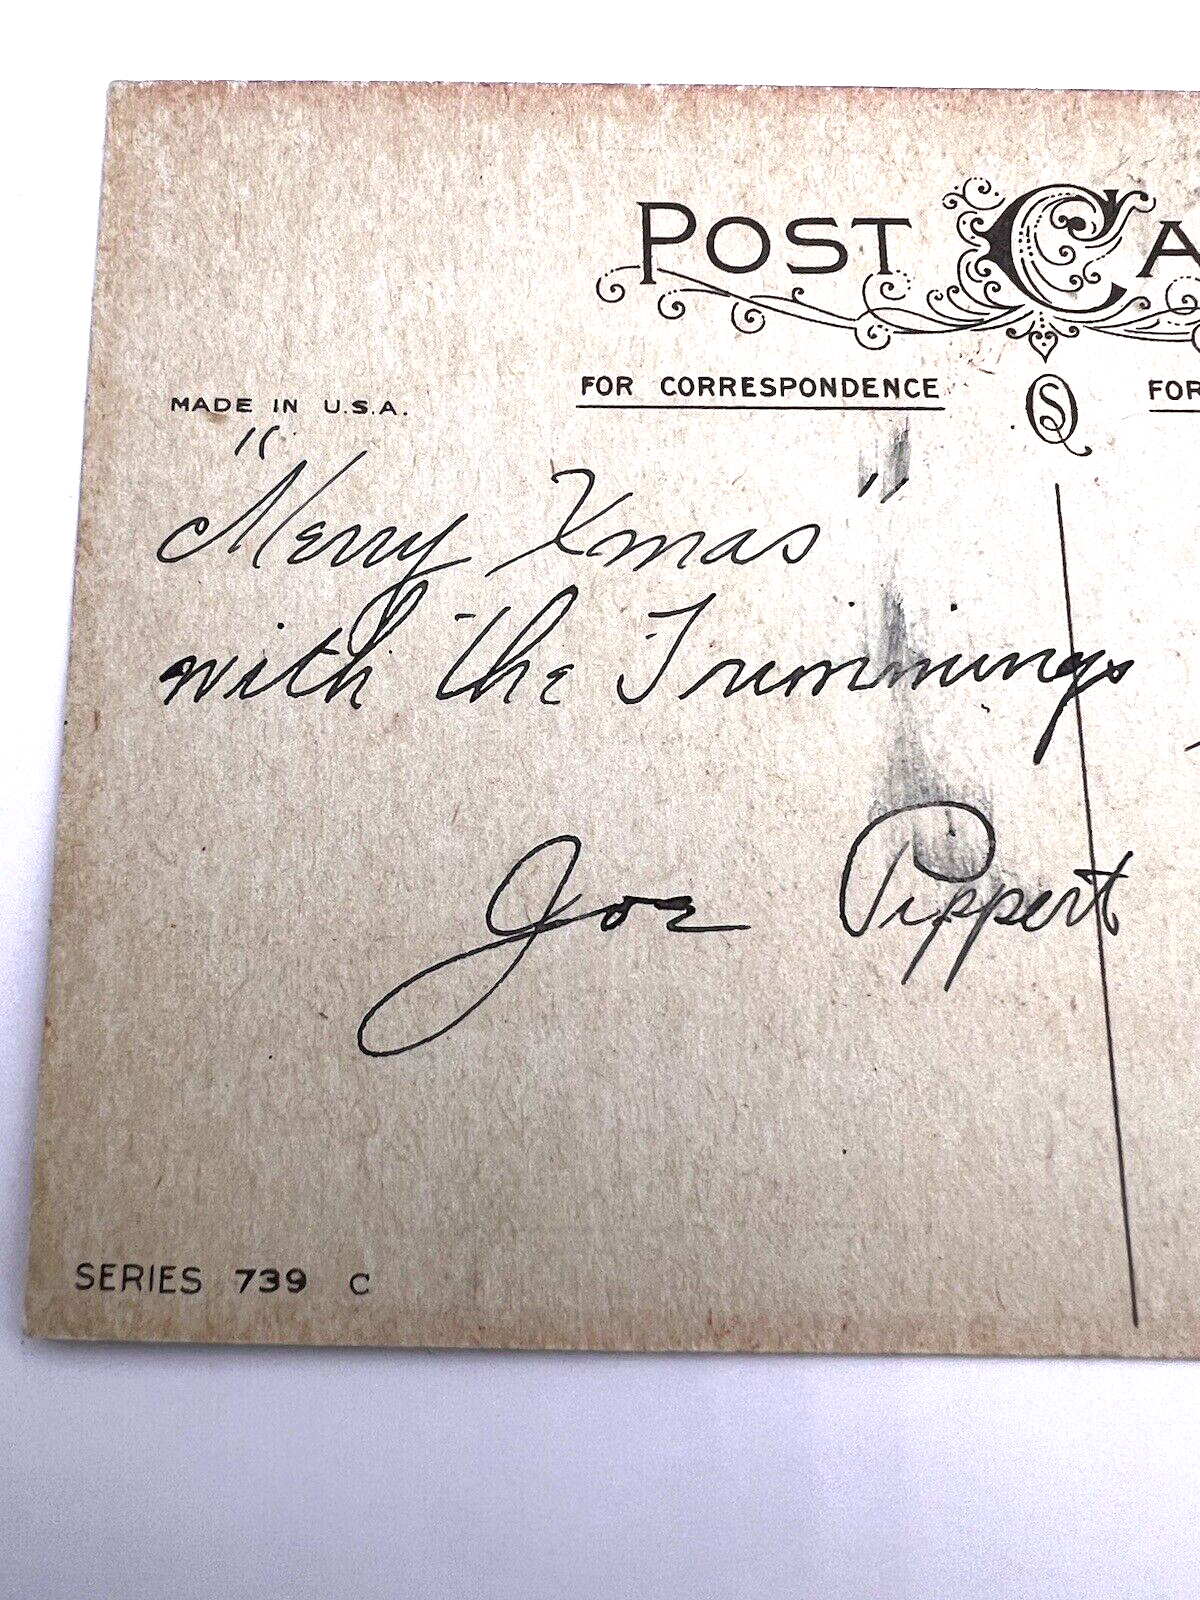 POST CA
FOR CORRESPONDENCE
FOR
MADE IN U.S.A.
SQ
"Merry Xmas"
with the Trimmings
Joe Pippert
SERIES 739 C